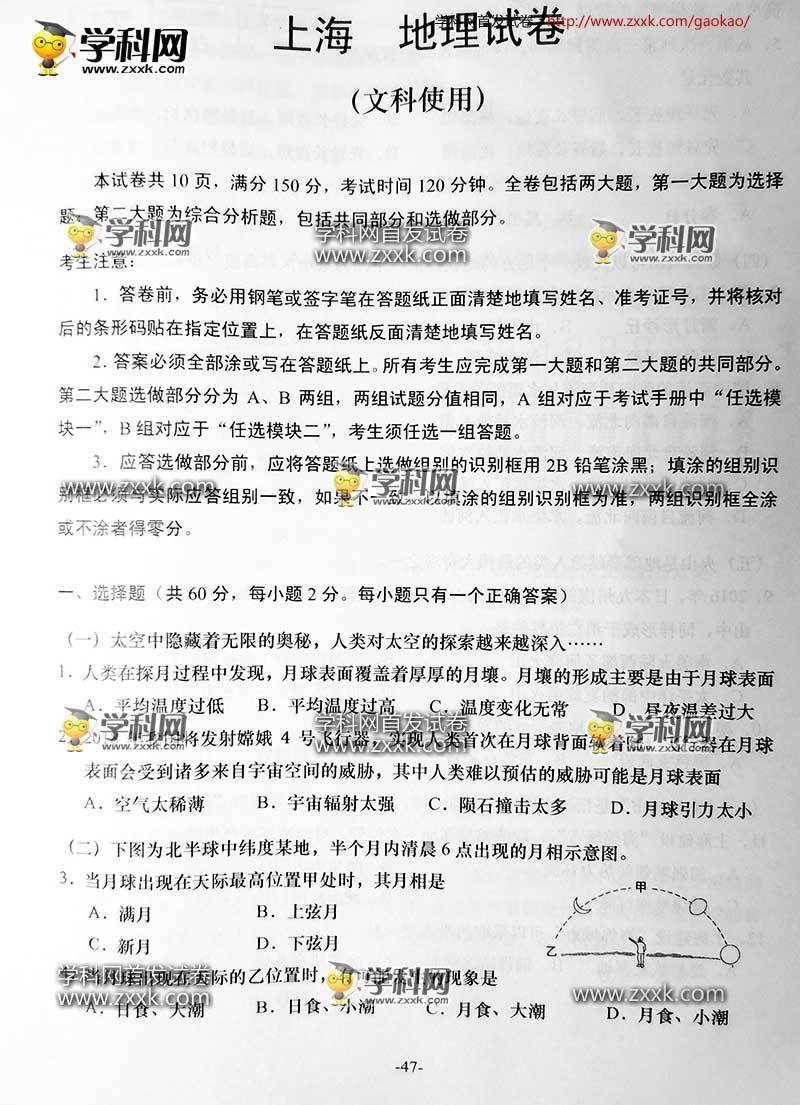 学科网首发试卷 http://www.zxxk.com/gaokao/
学科网
www.zxxk.com
上海 地理试卷
(文科使用)
本试卷共 10 页，满分 150 分，考试时间 120 分钟。全卷包括两大题，第一大题为选择
题；第二大题为综合分析题，包括共同部分和选做部分。
学科网
www.zxxk.com
学科网首发试卷
www.zxxk.com
学科网
www.zxxk.com
考生注意：
1．答卷前，务必用钢笔或签字笔在答题纸正面清楚地填写姓名、准考证号，并将核对
后的条形码贴在指定位置上，在答题纸反面清楚地填写姓名。
2．答案必须全部涂或写在答题纸上。所有考生应完成第一大题和第二大题的共同部分。
第二大题选做部分分为 A、B 两组，两组试题分值相同，A 组对应于考试手册中“任选模
块一”，B 组对应于“任选模块二”，考生须任选一组答题。
3．应答选做部分前，应将答题纸上选做组别的识别框用 2B 铅笔涂黑；填涂的组别识
别框必须与实际应答组别一致，如果不一致 填涂的组别识别框为准，两组识别框全涂
或不涂者得零分。
学科网首发试卷
www.zxxk.com
学科网
www.zxxk.com
学科网首发试卷
www.zxxk.com
一、选择题（共 60 分，每小题 2 分。每小题只有一个正确答案）
（一）太空中隐藏着无限的奥秘，人类对太空的探索越来越深入……
1．人类在探月过程中发现，月球表面覆盖着厚厚的月壤。月壤的形成主要是由于月球表面
A．平均温度过低 B．平均温度过高 C．温度变化无常 D．昼夜温差过大
学科网
www.zxxk.com
学科网首发试卷
www.zxxk.com
学科网
www.zxxk.com
2． 将发射嫦娥 4 号飞行器，实现人类首次在月球背面 器在月球
表面会受到诸多来自宇宙空间的威胁，其中人类难以预估的威胁可能是月球表面
A．空气太稀薄 B．宇宙辐射太强 C．陨石撞击太多 D．月球引力太小
（二）下图为北半球中纬度某地，半个月内清晨 6 点出现的月相示意图。
3．当月球出现在天际最高位置甲处时，其月相是
A．满月 B．上弦月
C．新月 D．下弦月
甲
乙
学科网首发试卷
www.zxxk.com
学科网
www.zxxk.com
学科网首发试卷
www.zxxk.com
当月球出现在天际的乙位置时，有可 的现象是
A．日食、大潮 B．日食、小潮 C．月食、大潮 D．月食、小潮
-47-